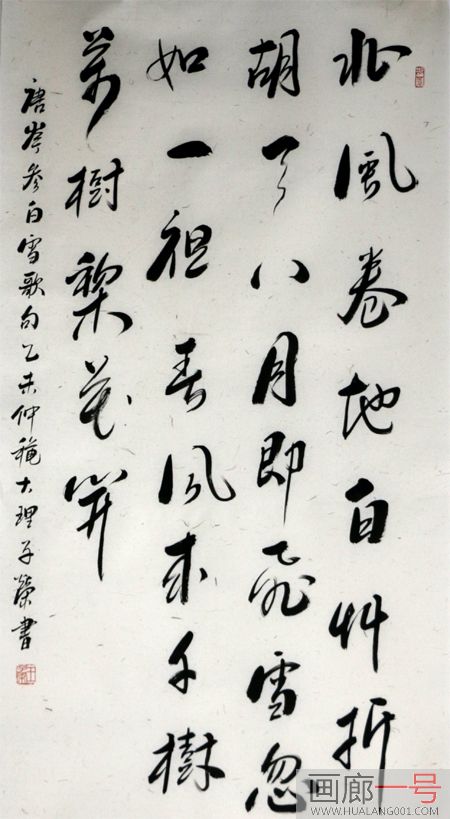 北風卷地白艸折
胡天八月即飛雪忽
如一祖春風來千樹
萬樹梨花開
唐岑參白雪歌句乙未仲穐大理子榮書
画廊一号
WWW.HUALANG001.COM